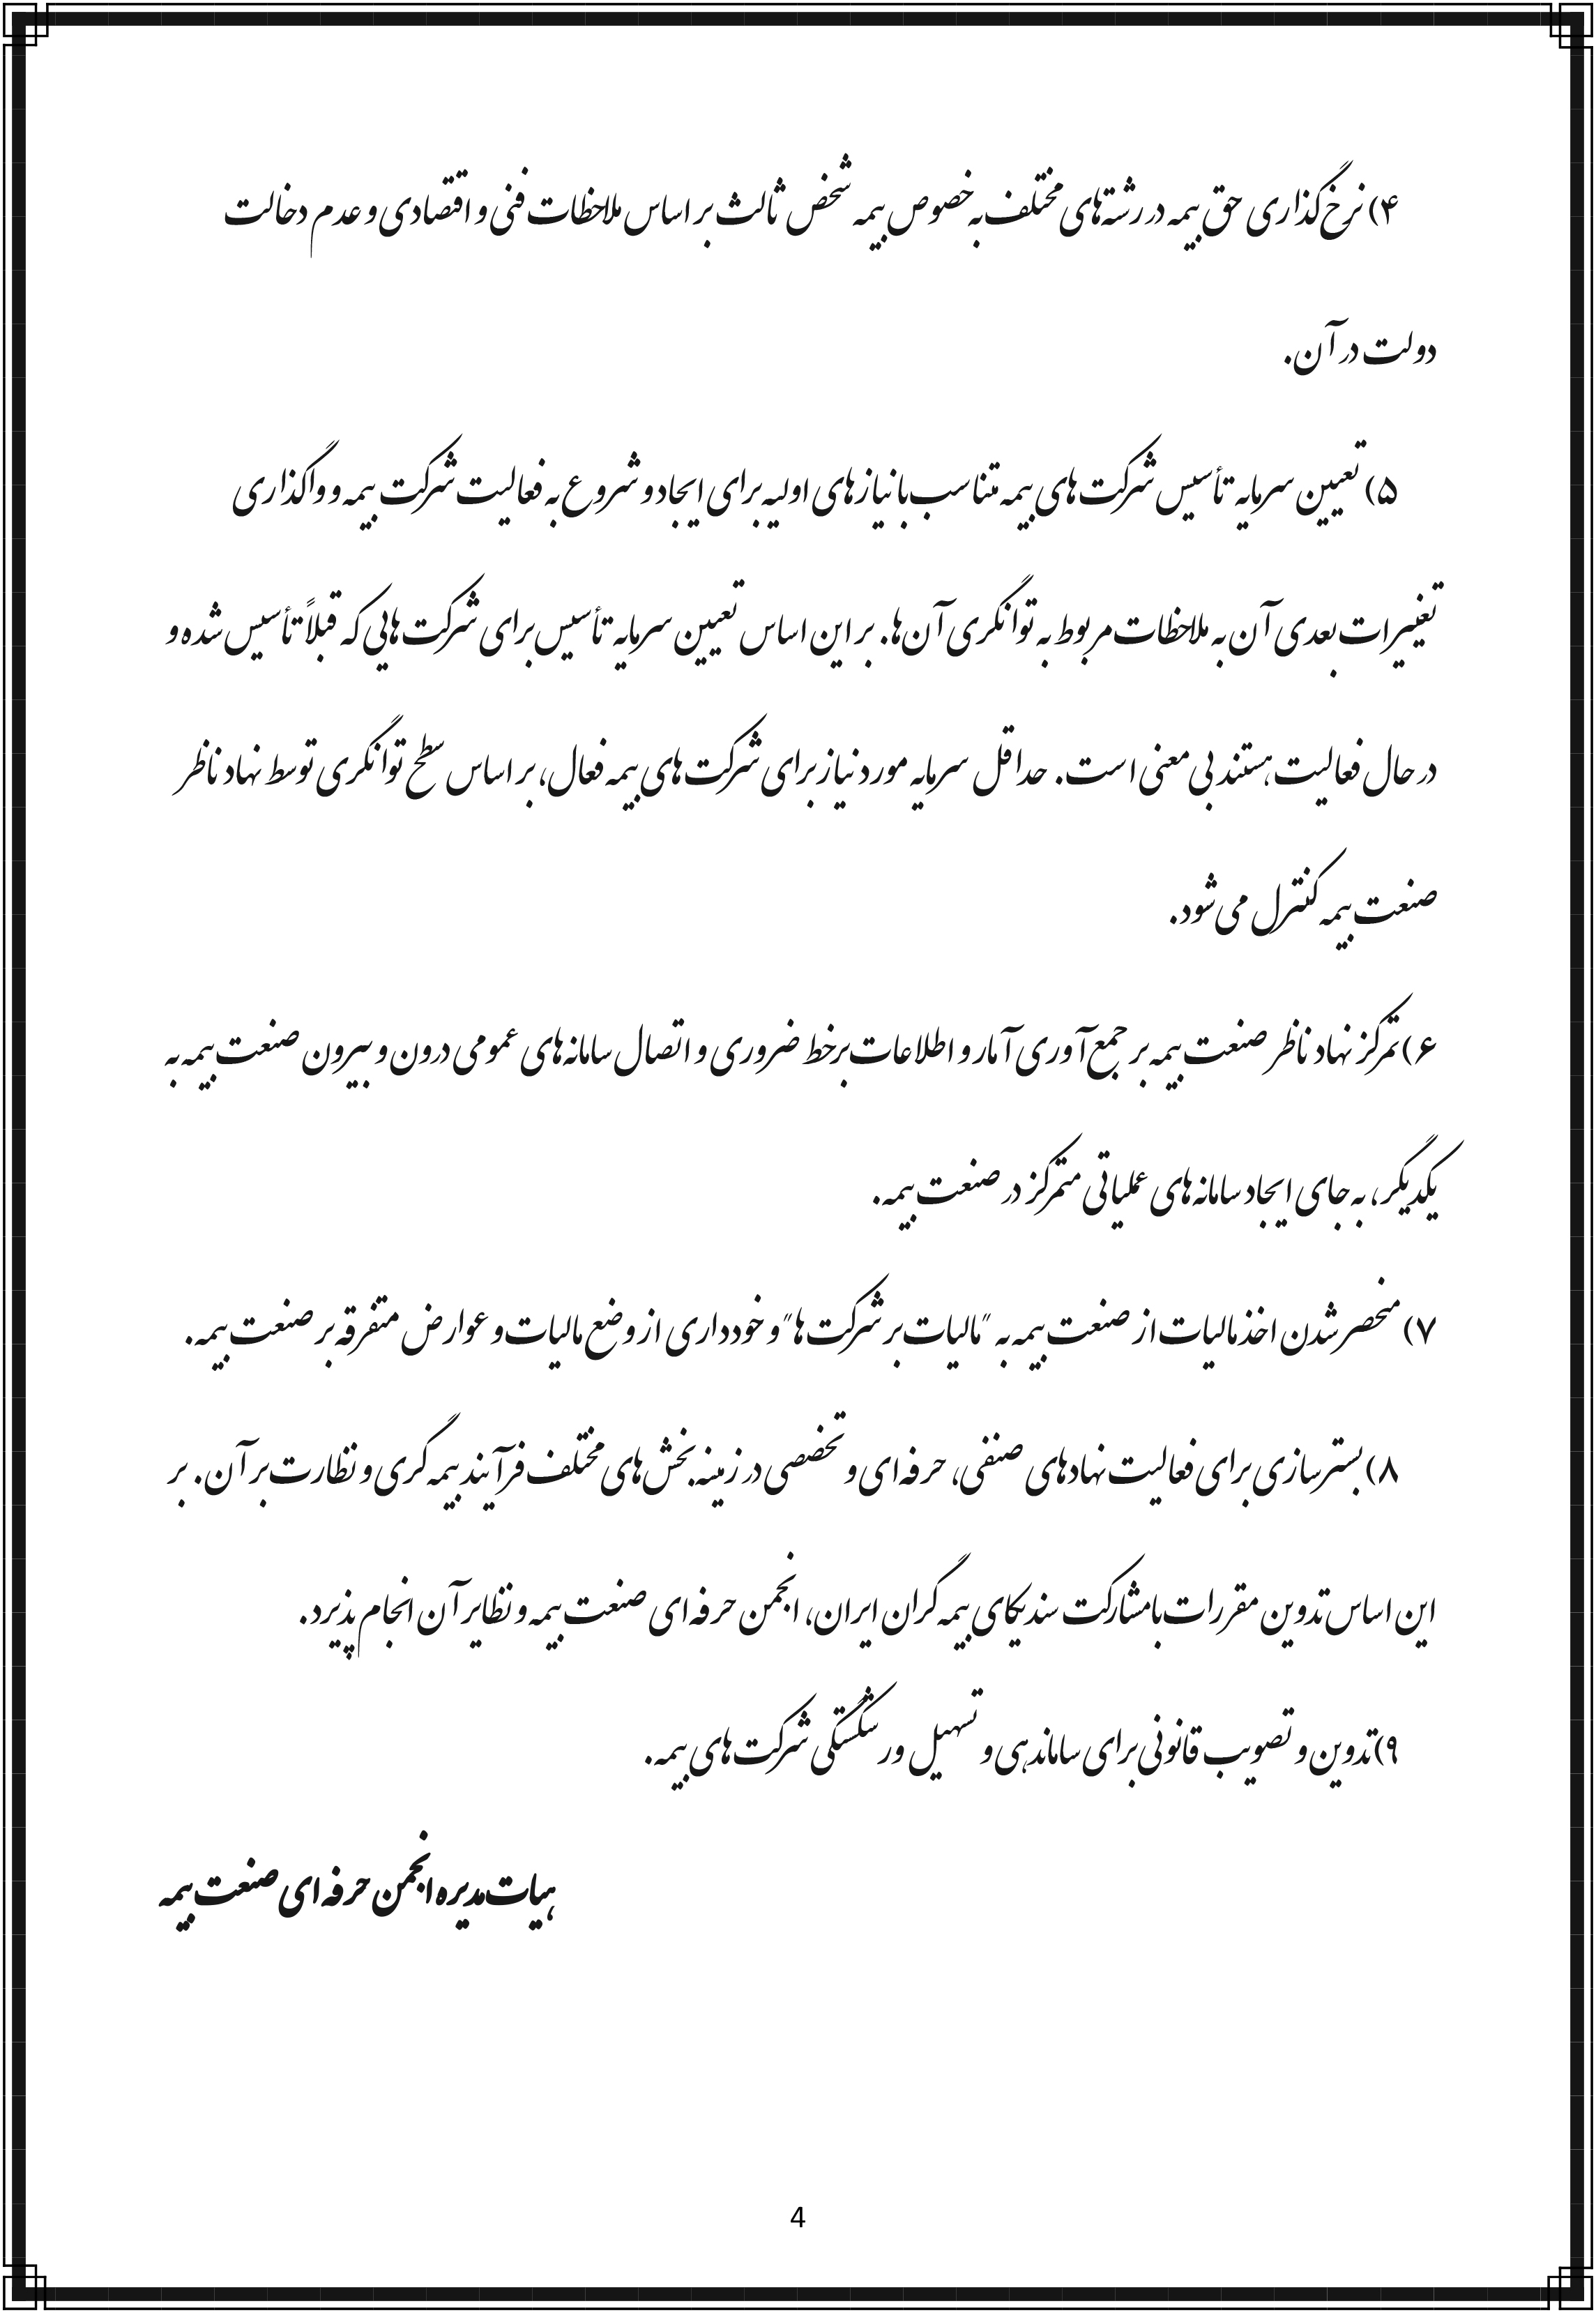 ۴) نرخ‌گذاری حق بیمه در رشته‌های مختلف به خصوص بیمه شخص ثالث بر اساس ملاحظات فنی و اقتصادی و عدم دخالت
دولت در آن.
۵) تعیین سرمایه تأسیس شرکت‌های بیمه متناسب با نیازهای اولیه برای ایجاد و شروع به فعالیت شرکت بیمه و واگذاری
تغییرات بعدی آن به ملاحظات مربوط به توانگری آن‌ها. بر این اساس تعیین سرمایه تأسیس برای شرکت‌هایی که قبلاً تأسیس شده و
در حال فعالیت هستند بی‌معنی است. حداقل سرمایه مورد نیاز برای شرکت‌های بیمه فعال، بر اساس سطح توانگری توسط نهاد ناظر
صنعت بیمه کنترل می‌شود.
۶) تمرکز نهاد ناظر صنعت بیمه بر جمع‌آوری آمار و اطلاعات برخط ضروری و اتصال سامانه‌های عمومی درون و بیرون صنعت بیمه به
یکدیگر، به جای ایجاد سامانه‌های عملیاتی متمرکز در صنعت بیمه.
۷) منحصر شدن اخذ مالیات از صنعت بیمه به "مالیات بر شرکت‌ها" و خودداری از وضع مالیات و عوارض متفرقه بر صنعت بیمه.
۸) بسترسازی برای فعالیت نهادهای صنفی، حرفه‌ای و تخصصی در زمینه بخش‌های مختلف فرآیند بیمه‌گری و نظارت بر آن. بر
این اساس تدوین مقررات با مشارکت سندیکای بیمه‌گران ایران، انجمن حرفه‌ای صنعت بیمه و نظایر آن انجام پذیرد.
۹) تدوین و تصویب قانونی برای ساماندهی و تسهیل ورشکستگی شرکت‌های بیمه.
هیات مدیره انجمن حرفه‌ای صنعت بیمه
4